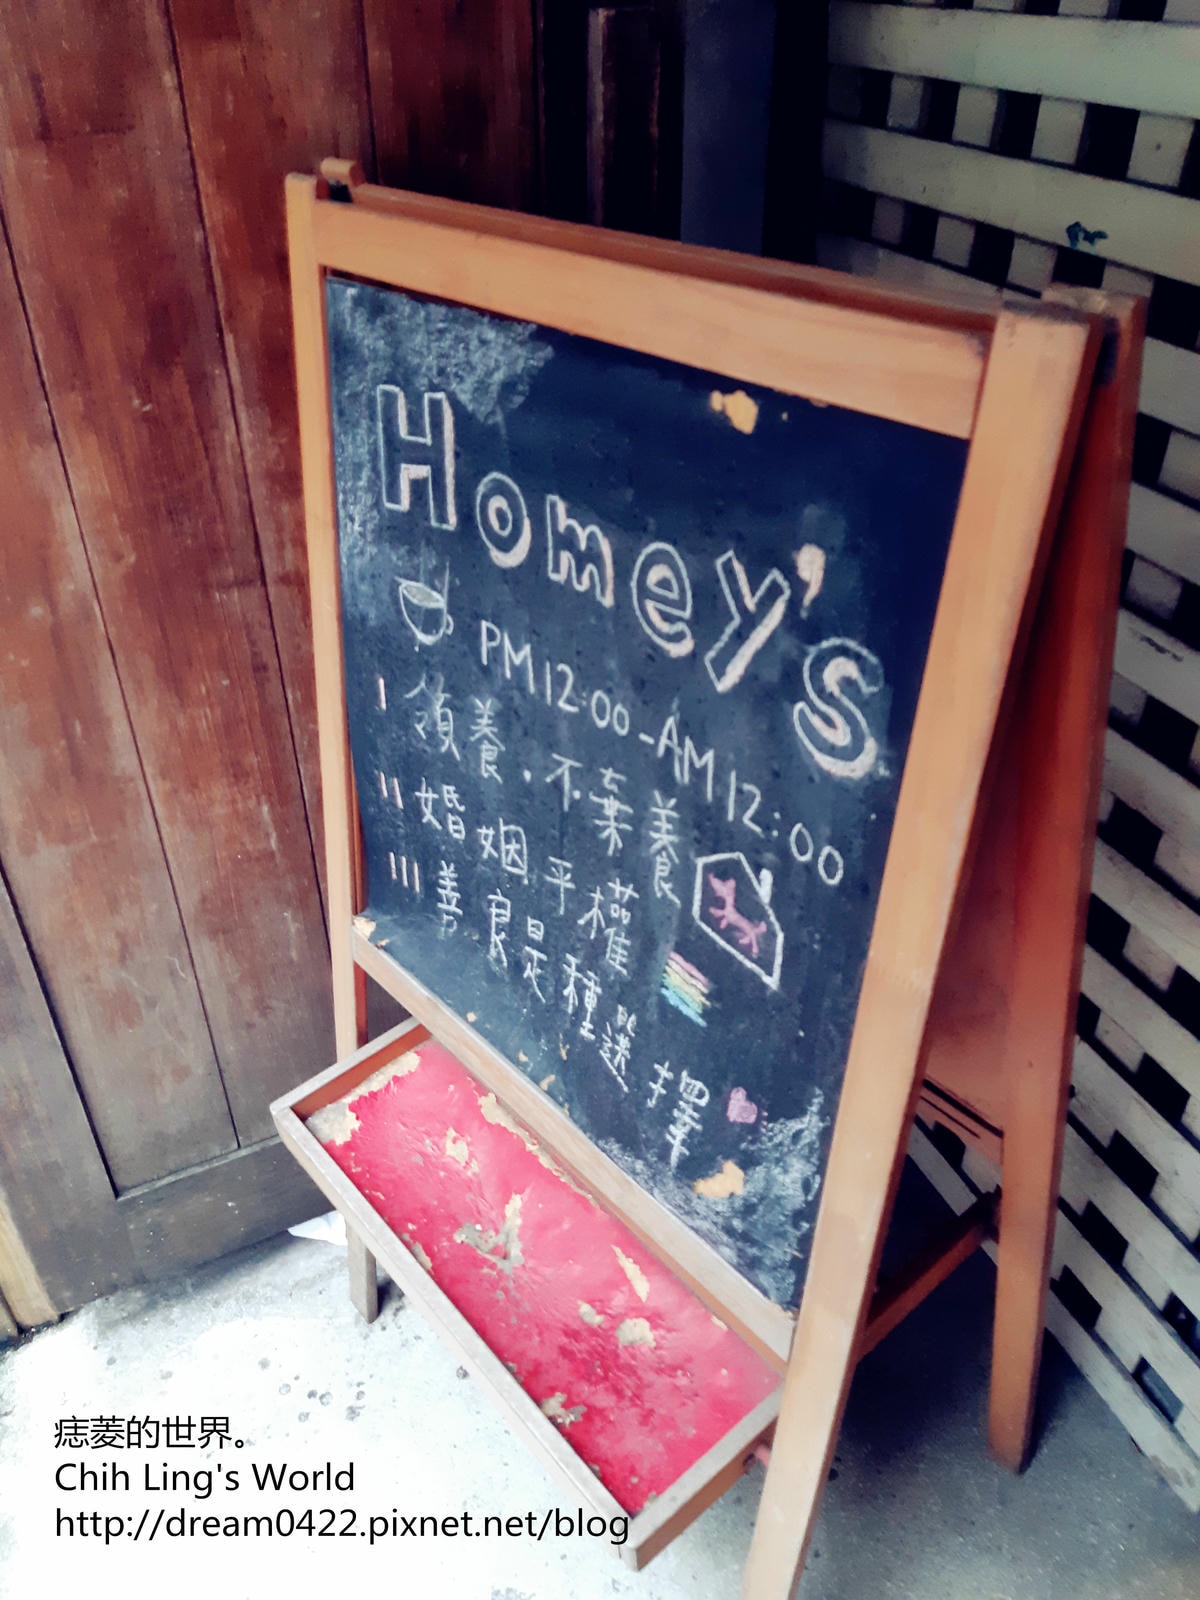 Homey's
PM12:00-AM12:00
I 領養.不棄養
II 婚姻平權
III 善良是種選擇
痣菱的世界。
Chih Ling's World
http://dream0422.pixnet.net/blog